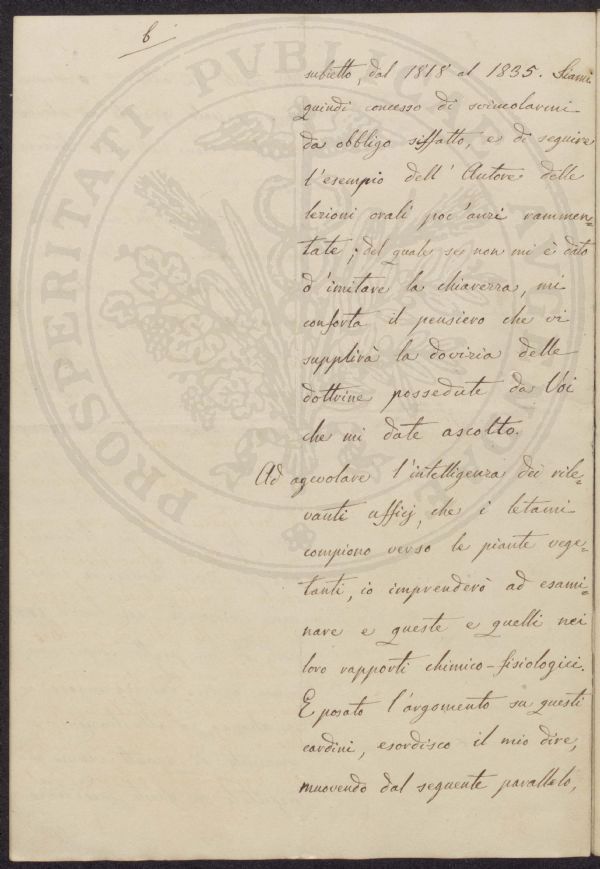 6
subietto, dal 1818 al 1835. Siami
quindi concesso di svincolarmi
da obbligo siffatto, e di seguire
l'esempio dell' Autore delle
lezioni orali poc'anzi rammen=
tate; del quale se non mi è dato
d'imitare la chiarezza, mi
conforta il pensiero che vi
supplirà la dovizia delle
dottrine possedute da Voi
che mi date ascolto.
Ad agevolare l'intelligenza dei rile=
vanti ufficj, che i letami
compiono verso le piante vege=
tanti, io imprenderò ad esami=
nare e queste e quelli nei
loro rapporti chimico-fisiologici.
E posato l'argomento su questi
cardini, esordisco il mio dire,
muovendo dal seguente parallelo,
PROSPERITATI PVBLICAE